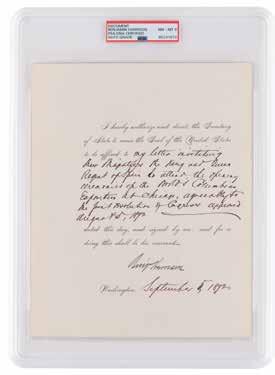 DOCUMENT
BENJAMIN HARRISON
PSA/DNA CERTIFIED
AUTO GRADE
NM - MT 8
I hereby authorize and direct the Secretary
of State to cause the Seal of the United States
to be affixed to my letter inviting
Their Majesties the King and Queen
Regent of Spain to attend the opening
ceremonies of the World's Columbian
Exposition at Chicago, agreeably to
the Joint Resolution of Congress approved
August 5, 1892
dated this day, and signed by me: and for so
doing this shall be his warrant.
Benj Harrison
Washington, September 5, 1892